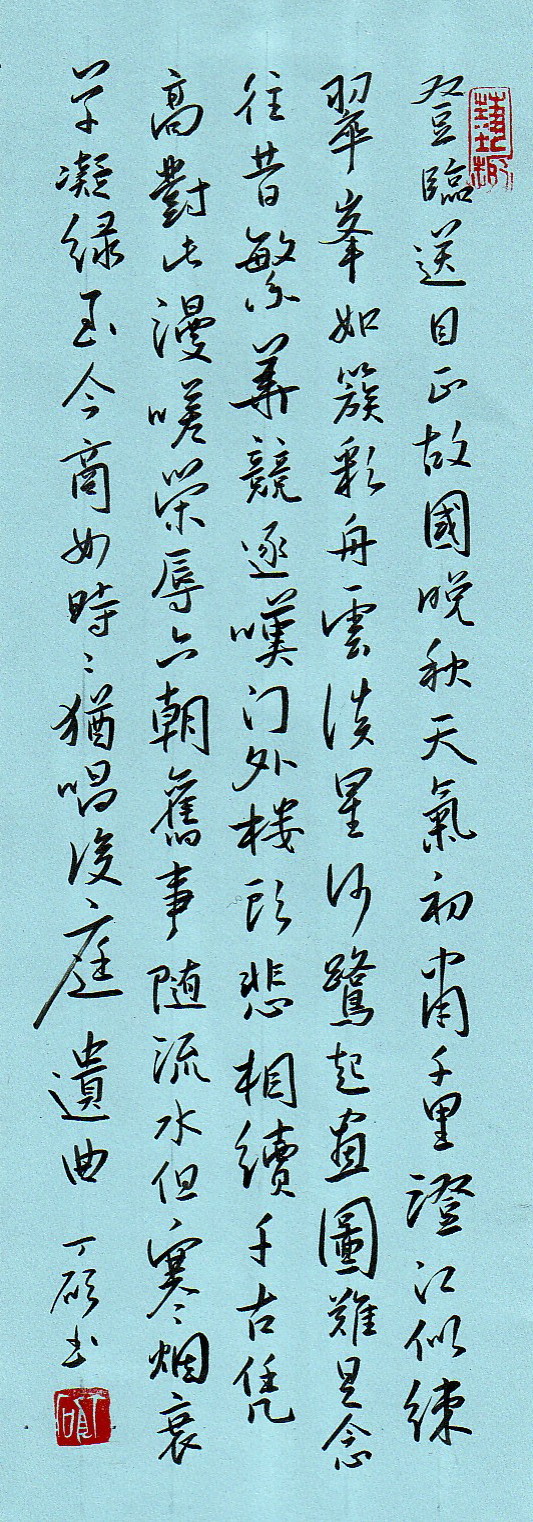 登臨送目正故國晚秋天氣初肅千里澄江似練
翠峯如簇彩舟雲淡星河鷺起畫圖難足念
往昔繁華競逐嘆门外楼头悲相續千古凭
高對此漫嗟榮辱六朝舊事随流水但寒烟衰
草凝绿至今商女時〻猶唱後庭遺曲 丁硕书